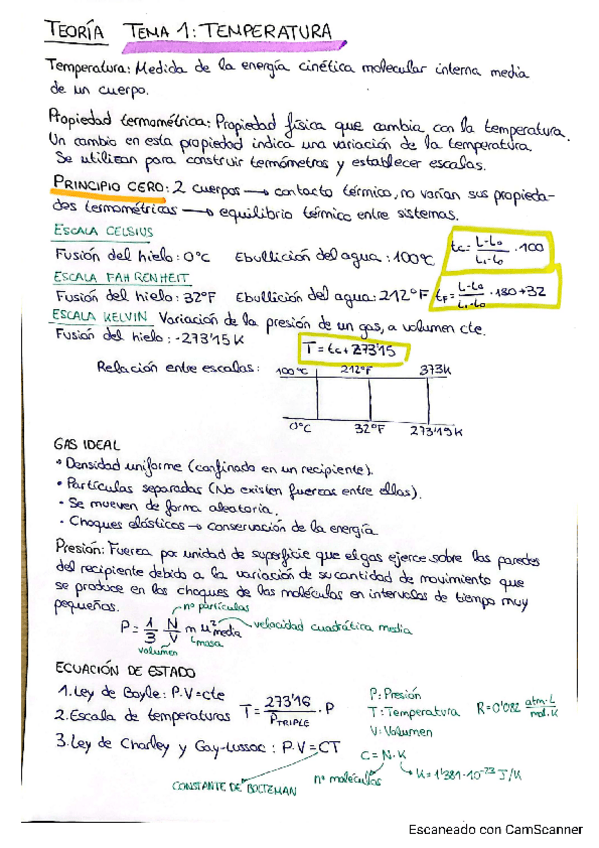 TEORÍA TEMA 1: TEMPERATURA
Temperatura: Medida de la energía cinética molecular interna media
de un cuerpo.
Propiedad termométrica: Propiedad física que cambia con la temperatura.
Un cambio en esta propiedad indica una variación de la temperatura.
Se utilizan para construir termómetros y establecer escalas.
PRINCIPIO CERO: 2 cuerpos → contacto térmico, no varían sus propieda-
des termométricas → equilibrio térmico entre sistemas.
ESCALA CELSIUS
Fusión del hielo: 0°C Ebullición del agua: 100°C tc = L-L₀ / L₁-L₀ · 100
ESCALA FAHRENHEIT
Fusión del hielo: 32°F Ebullición del agua: 212°F tF = L-L₀ / L₁-L₀ · 180+32
ESCALA KELVIN Variación de la presión de un gas, a volumen cte.
Fusión del hielo: -273'15 K T = tc + 273'15
Relación entre escalas: 100°C 212°F 373K
0°C 32°F 273'15K
GAS IDEAL
• Densidad uniforme (confinado en un recipiente).
• Partículas separadas (No existen fuerzas entre ellas).
• Se mueven de forma aleatoria.
• Choques elásticos → conservación de la energía
Presión: Fuerza por unidad de superficie que el gas ejerce sobre las paredes
del recipiente debido a la variación de su cantidad de movimiento que
se produce en los choques de las moléculas en intervalos de tiempo muy
pequeños.
nº partículas
P = 1/3 N/V m u²media velocidad cuadrática media
volumen masa
ECUACIÓN DE ESTADO
1. Ley de Boyle: P·V=cte
2. Escala de temperaturas T = 273'16 / P TRIPLE · P
3. Ley de Charley y Gay-Lussac: P·V=CT
P: Presión
T: Temperatura R=0'082 atm·L / mol·K
V: Volumen
C = N·K
nº moléculas K=1'381·10⁻²³ J/K
CONSTANTE DE BOLTEMAN
Escaneado con CamScanner